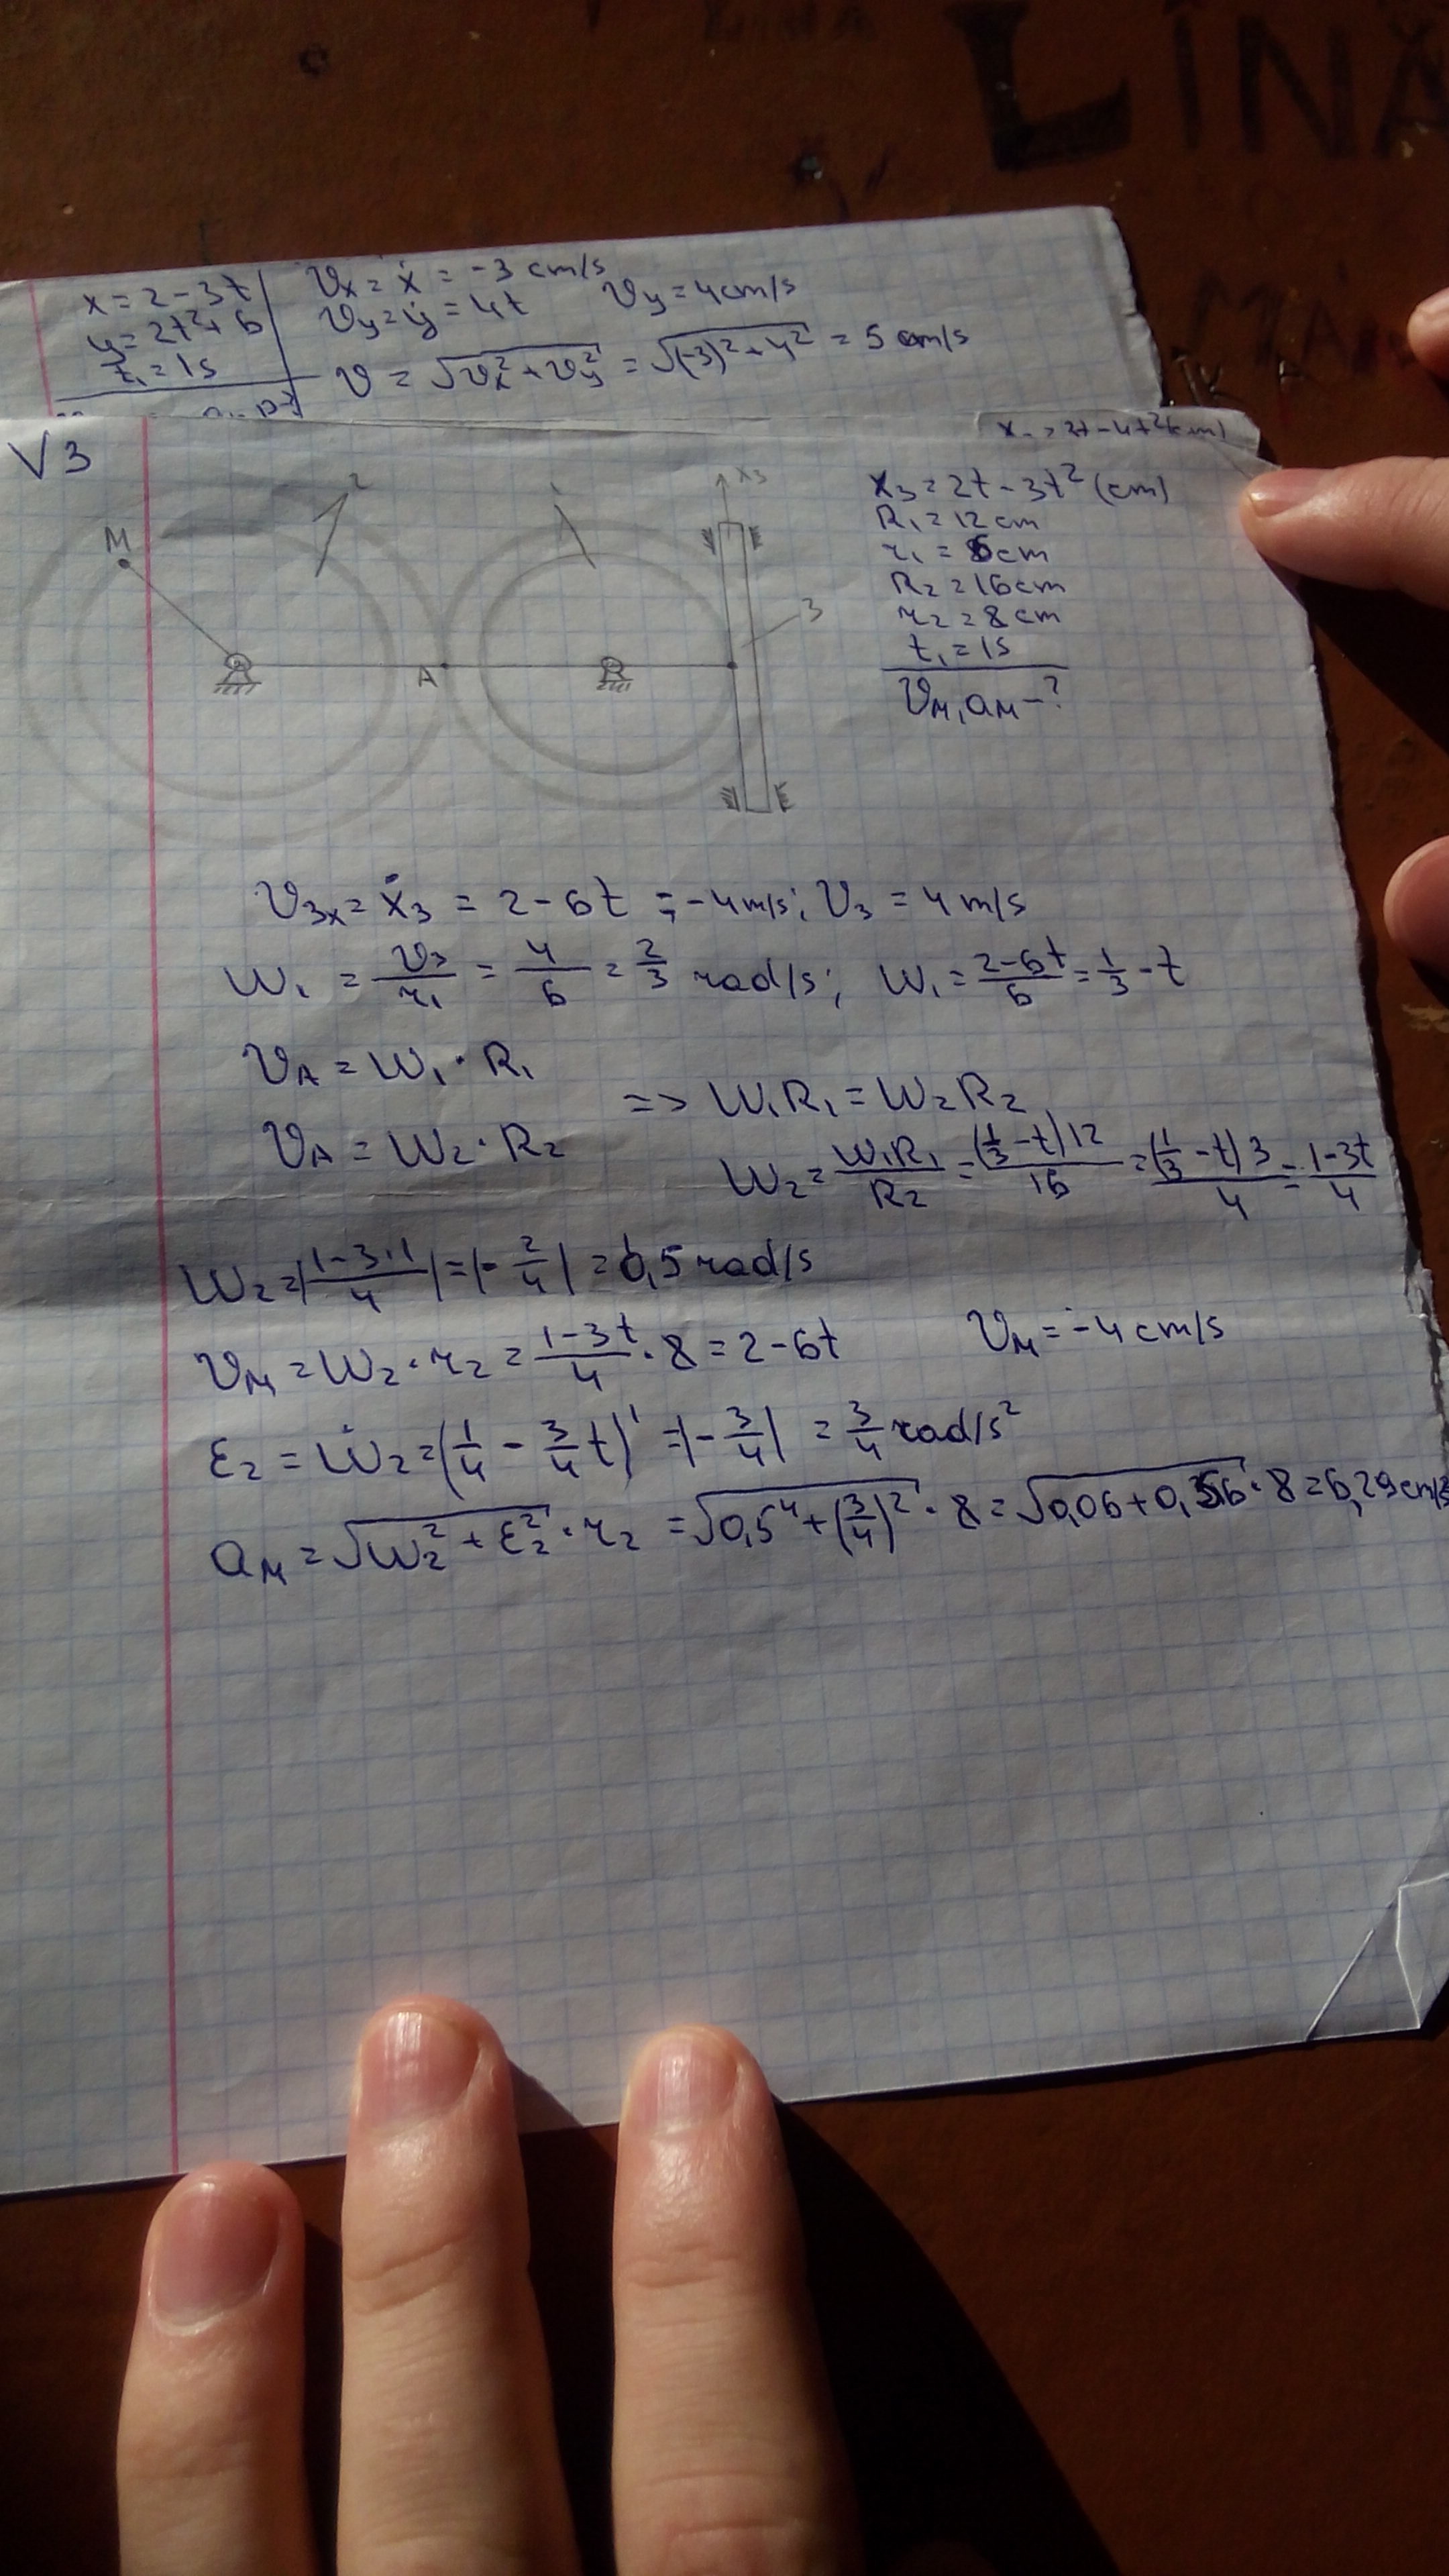 LINA
LÎNĂ
x = 2 - 3t
y = 2t² + 6
t₁ = 1s
𝑣ₓ = ẋ = -3 cm/s
𝑣y = ẏ = 4t 𝑣y = 4 cm/s
𝑣 = √(𝑣ₓ² + 𝑣y²) = √((-3)² + 4²) = 5 cm/s
V3
M
2
1
x₃
A
3
x₃ = 2t - 3t² (cm)
R₁ = 12 cm
r₁ = 6 cm
R₂ = 16 cm
r₂ = 8 cm
t₁ = 1s
𝑣M, aM - ?
𝑣₃ₓ = ẋ₃ = 2 - 6t = -4 m/s; 𝑣₃ = 4 m/s
W₁ = 𝑣₃/r₁ = 4/6 = 2/3 rad/s; W₁ = (2-6t)/6 = 1/3 - t
𝑣A = W₁ · R₁
𝑣A = W₂ · R₂
=> W₁R₁ = W₂R₂
W₂ = W₁R₁/R₂ = (1/3 - t)12/16 = (1/3 - t)3/4 = (1-3t)/4
W₂ = |(1-3·1)/4| = |-2/4| = 0,5 rad/s
𝑣M = W₂ · r₂ = (1-3t)/4 · 8 = 2 - 6t 𝑣M = -4 cm/s
ε₂ = Ẇ₂ = (1/4 - 3/4 t)' = |-3/4| = 3/4 rad/s²
aM = √(W₂² + ε₂²) · r₂ = √(0,5⁴ + (3/4)²) · 8 = √(0,06 + 0,56) · 8 = 6,29 cm/s